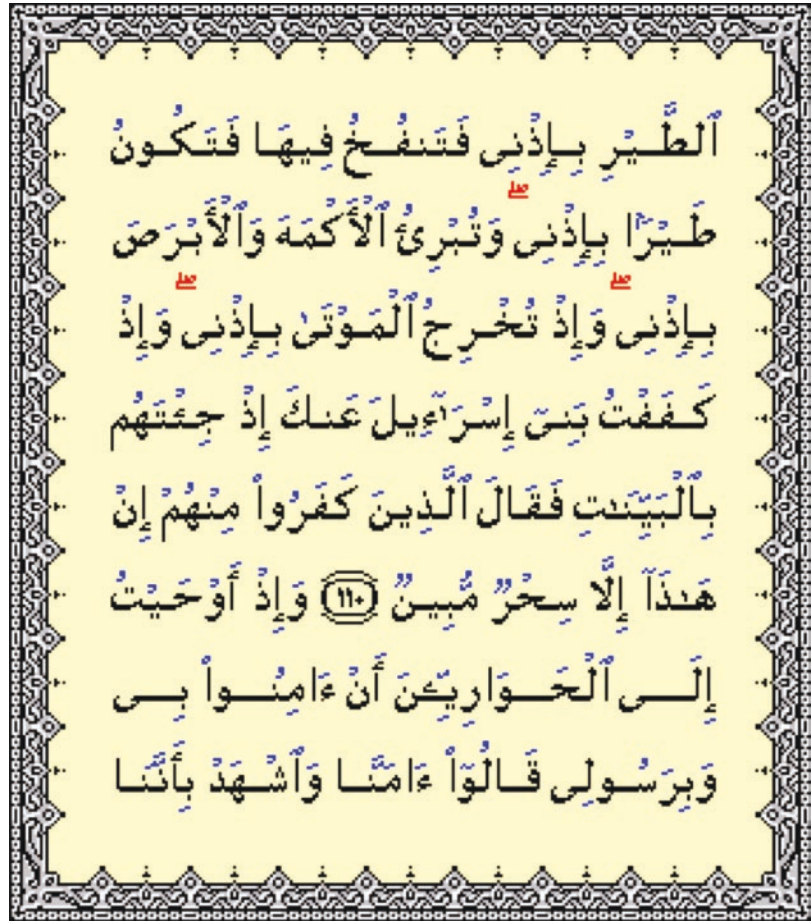 ٱلطَّيْرِ بِإِذْنِى فَتَنفُخُ فِيهَا فَتَكُونُ
طَيْرًۢا بِإِذْنِى ۖ وَتُبْرِئُ ٱلْأَكْمَهَ وَٱلْأَبْرَصَ
بِإِذْنِى ۖ وَإِذْ تُخْرِجُ ٱلْمَوْتَىٰ بِإِذْنِى ۖ وَإِذْ
كَفَفْتُ بَنِىٓ إِسْرَٰٓءِيلَ عَنكَ إِذْ جِئْتَهُم
بِٱلْبَيِّنَٰتِ فَقَالَ ٱلَّذِينَ كَفَرُوا۟ مِنْهُمْ إِنْ
هَٰذَآ إِلَّا سِحْرٌ مُّبِينٌ ١١٠ وَإِذْ أَوْحَيْتُ
إِلَى ٱلْحَوَارِيِّۦنَ أَنْ ءَامِنُوا۟ بِى
وَبِرَسُولِى قَالُوٓا۟ ءَامَنَّا وَٱشْهَدْ بِأَنَّنَا